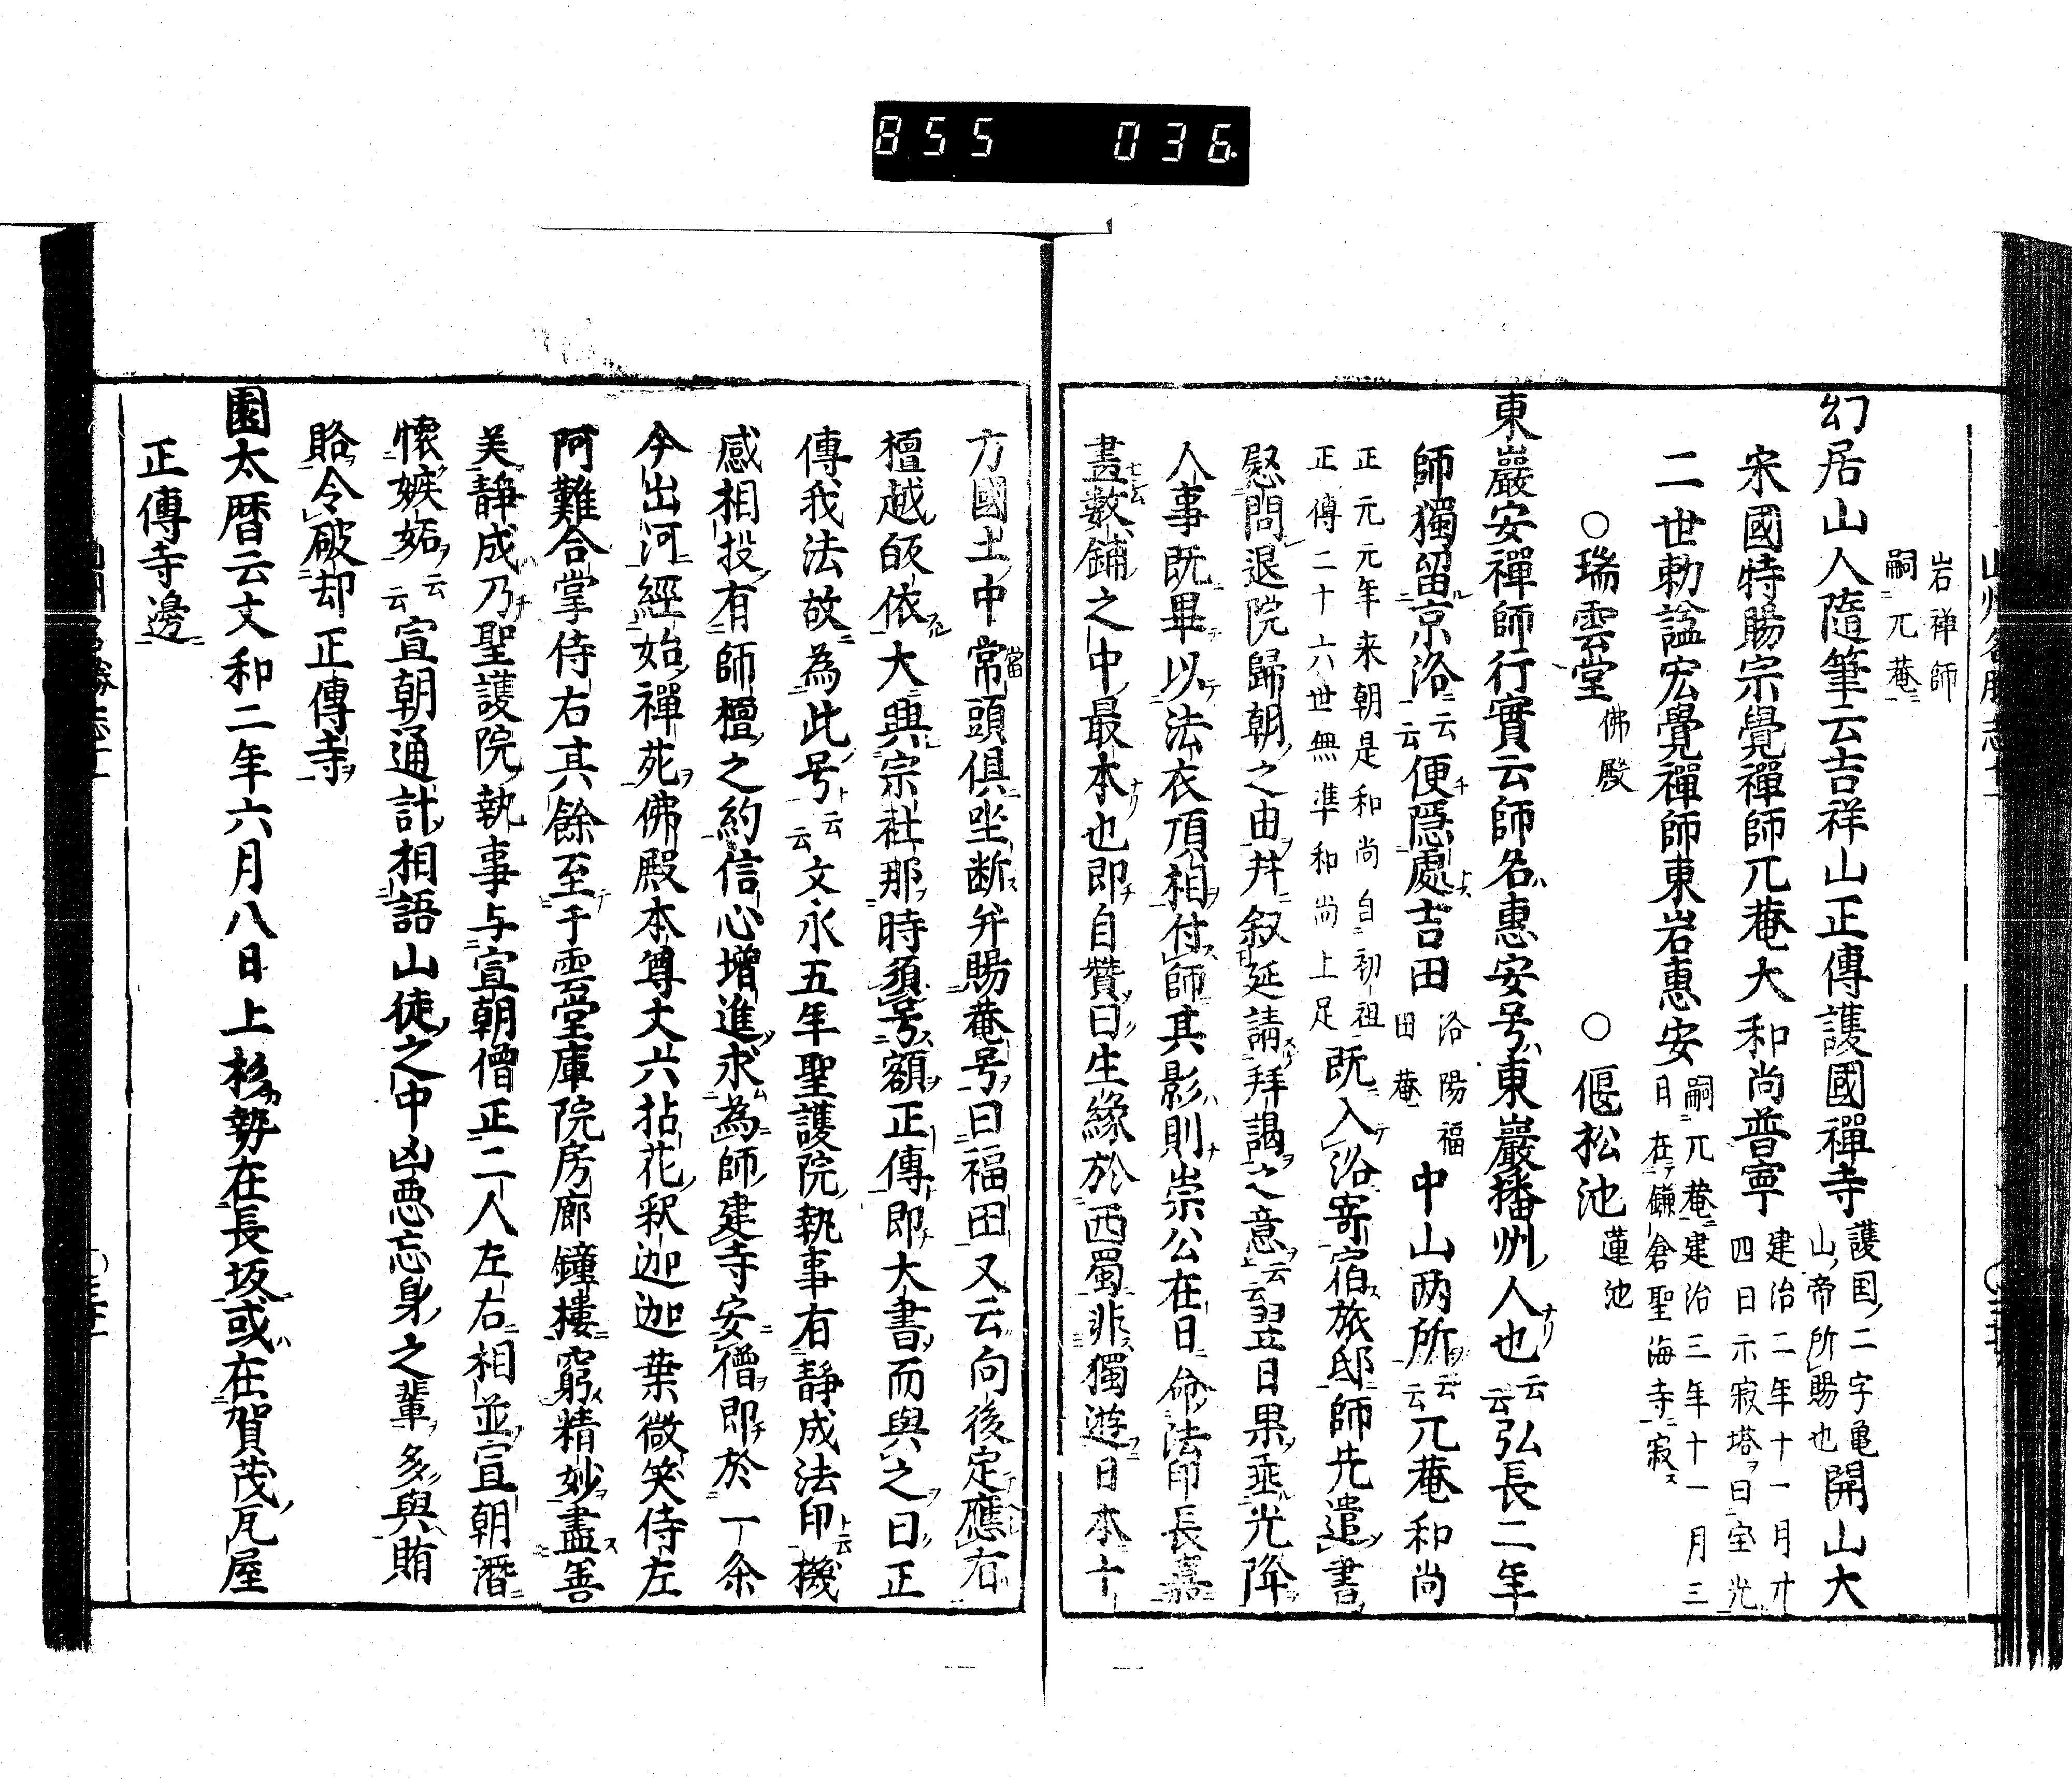 855 036
岩禅師
嗣兀菴
幻居山人隨筆云吉祥山正傳護國禪寺護国二字亀山帝所賜也開山大
宋國特賜宗覺禪師兀菴大和尚普寧建治二年十一月廿四日示寂塔曰宝光
二世勅諡宏覺禪師東岩惠安嗣兀菴建治三年十一月三日在鎌倉聖海寺寂
○瑞雲堂佛殿 ○偃松池蓮池
東巖安禪師行實云師名惠安号東巖播州人也云云弘長二年
師獨留京洛云云便隠處吉田洛陽福田菴中山两所云云兀菴和尚
正元元年来朝是和尚自初祖正傳二十六世無準和尚上足既入洛寄宿旅邸師先遣書
慰問退院歸朝之由并叙延請拜謁之意云云翌日果垂光降
人事既畢以法衣頂相付師其影則崇公在日命法印長嘉
畫數鋪之中最本也即自贊曰生縁於西蜀非獨遊日本十
方國土中常頭俱坐断弁賜菴号曰福田又云向後定應有
檀越皈依大興宗社那時須号額正傳即大書而與之曰正
傳我法故為此号云云文永五年聖護院執事有静成法印機
感相投有師檀之約信心增進求為師建寺安僧即於一条
今出河經始禪苑佛殿本尊丈六拈花釈迦迦葉微笑侍左
阿難合掌侍右其餘至于雲堂庫院房廊鐘樓窮精妙盡善
美静成乃聖護院執事与宣朝僧正二人左右相並宣朝潛
懐嫉妬云云宣朝通計相語山徒之中凶悪忘身之輩多與賄
賂令破却正傳寺
園太暦云文和二年六月八日上杉勢在長坂或在賀茂瓦屋
正傳寺邊